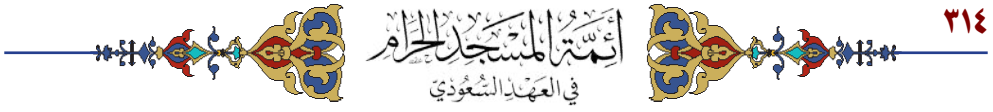 ٣١٤
أَئِمَّةُ المَسْجِدِ الحَرَامِ
في العَهْدِ السُّعُودِيّ